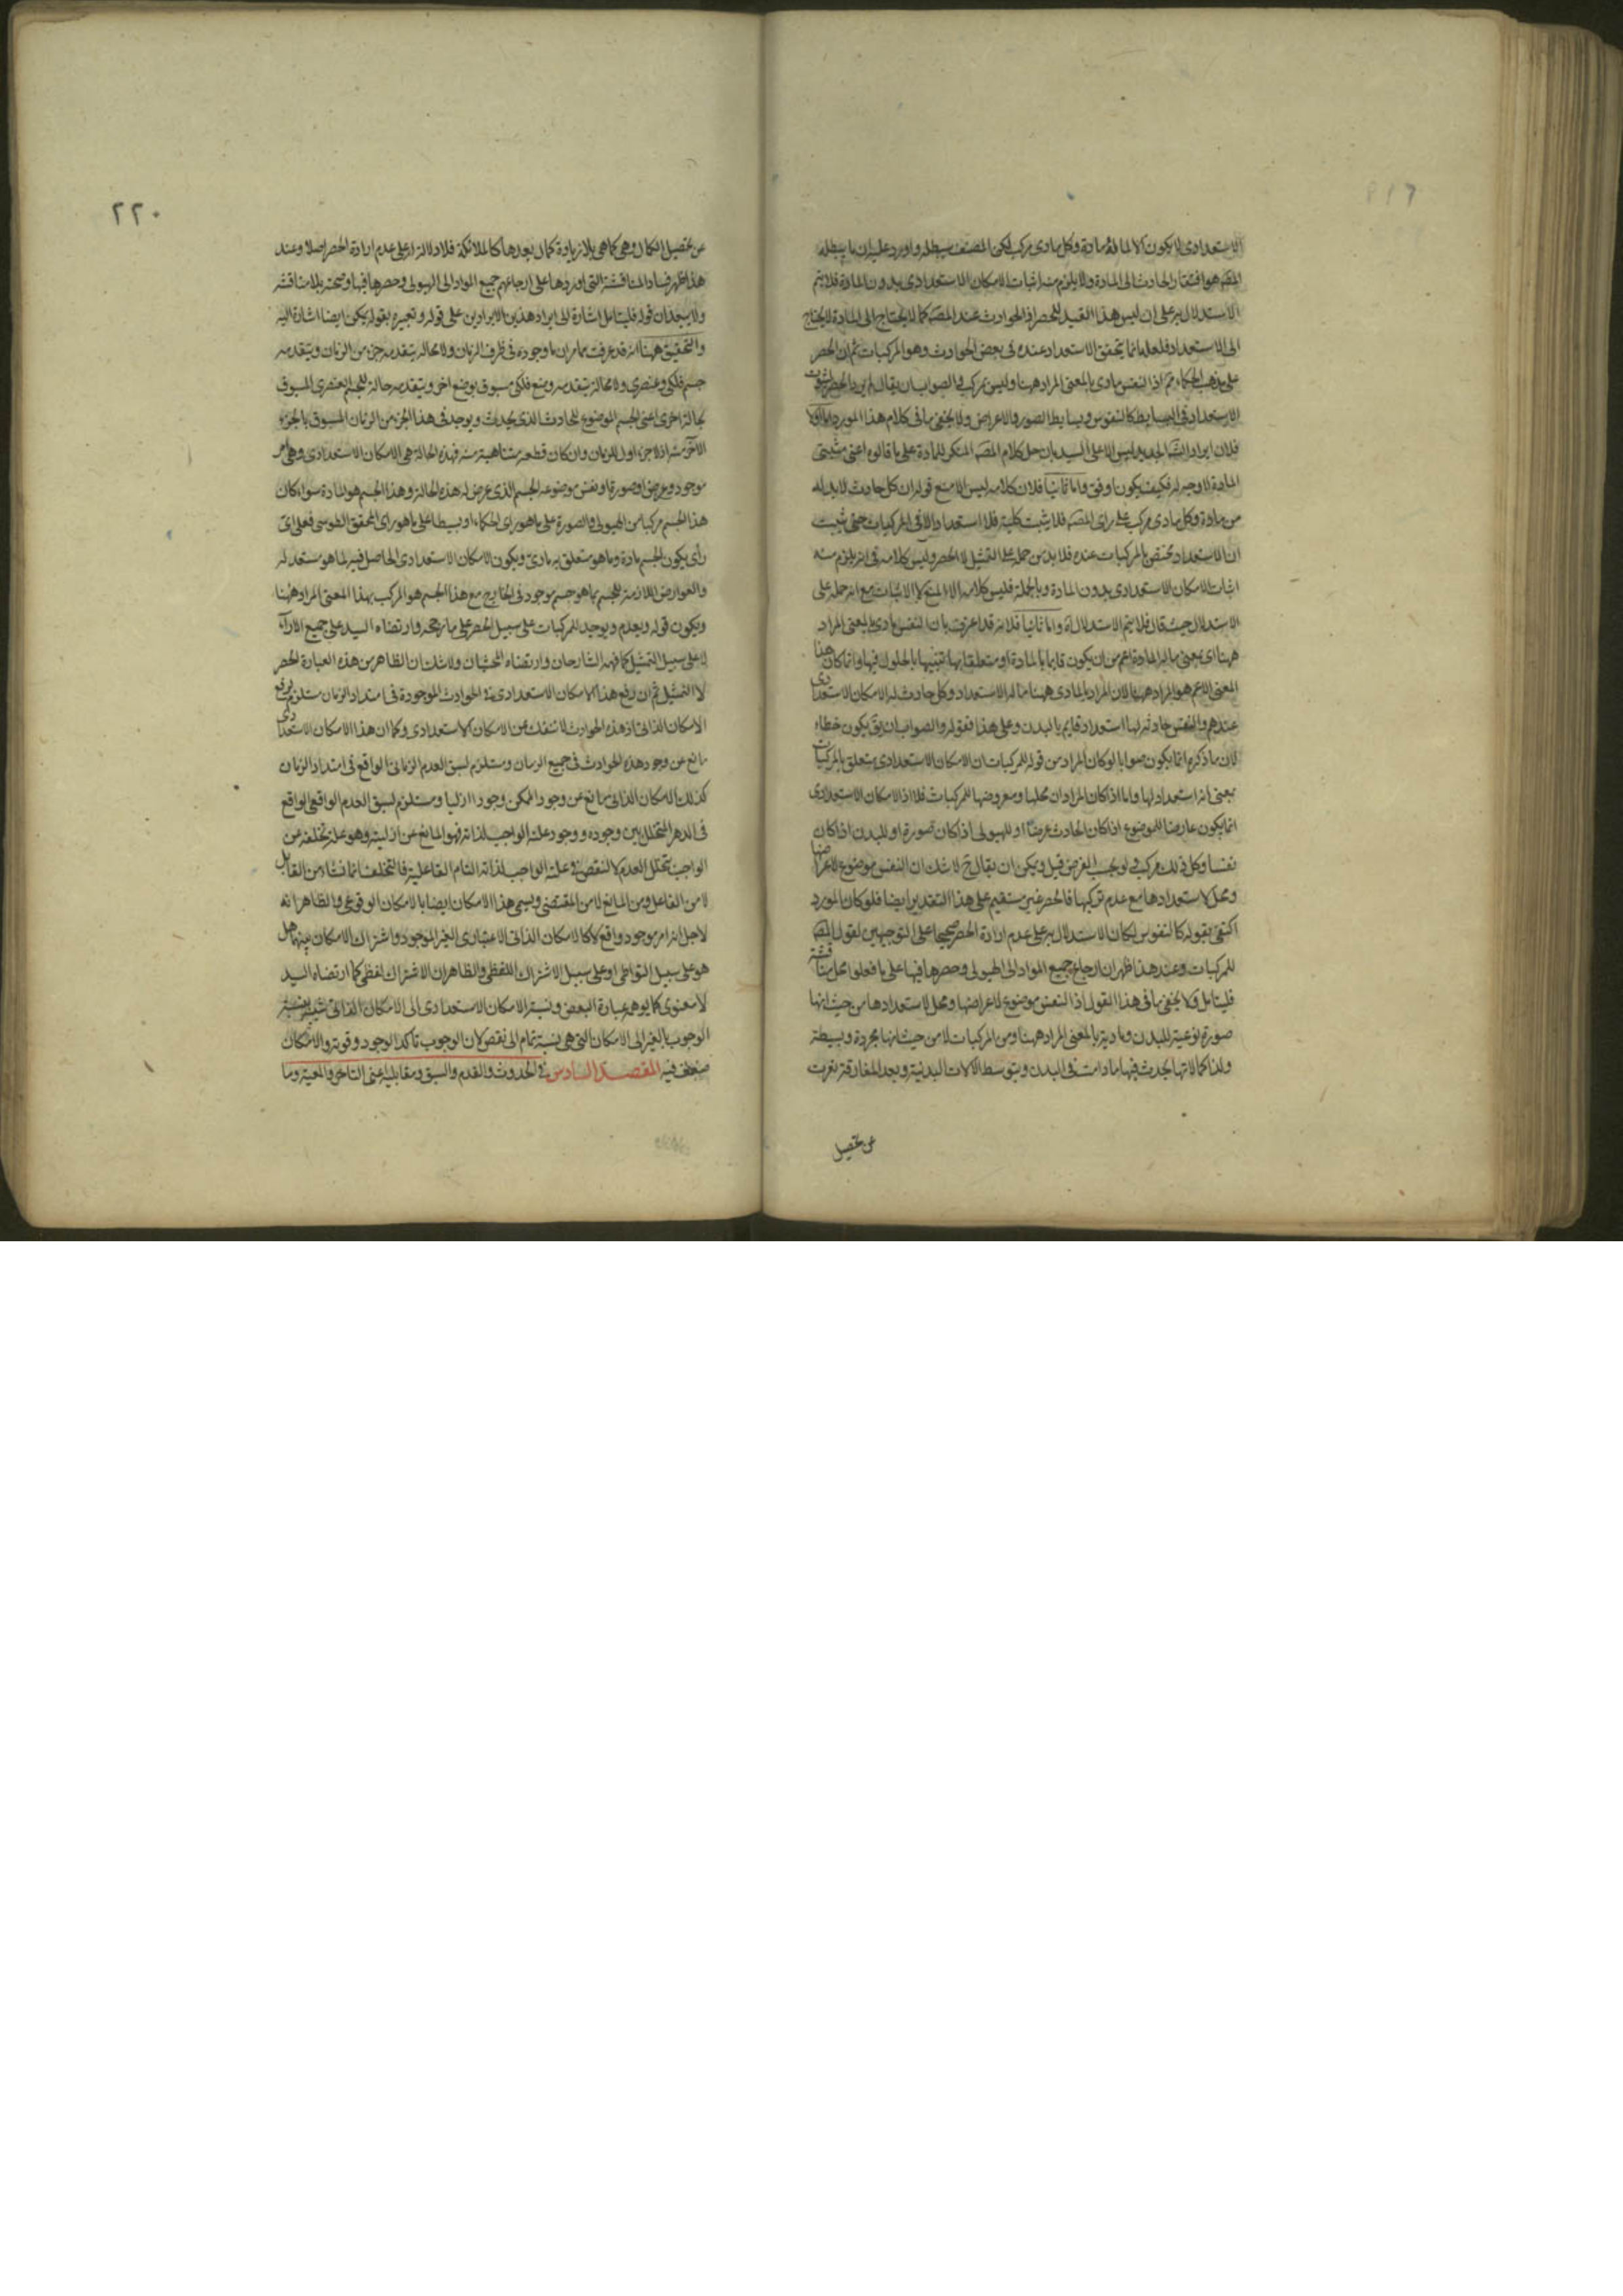 الاستعدادى لا يكون الا لما له مادة وكل مادى مركب لكن المصنف يبطله واورد عليه ان ما يبطله
المصَ هو افتقار الحادث الى المادة ولا يلزم منه اثبات الامكان الاستعدادى بدون المادة فلا يتم
الاستدلال به على ان ليس هذا القيد للحصر اذ الحوادث عند المصَ كما لا يحتاج الى المادة لا يحتاج
الى الاستعداد فلعله انما يتحقق الاستعداد عنده فى بعض الحوادث وهو المركبات ثم ان الحصر
على مذهب الحكماء اذ النفس مادى بالمعنى المراد ههنا وليس بمركب فالصواب ان يقال لم يرد بالحصر لثبوت
الاستعداد فى البسايط كالنفوس وبسايط الصور والاعراض ولا يخفى ما فى كلام هذا المورد اما اولا
فلان ايراد الشَ الجديد ليس الا على السيد بان حمل كلام المصَ المنكر للمادة على ما قالوه اعنى مثبتى
المادة لا وجه له فكيف يكون اوفق واما ثانيا فلان كلامه ليس الا منع قوله ان كل حادث لا بد له
من مادة وكل مادى مركب على راى المصَ فلا يثبت كلية فلا استعداد الا فى المركبات حتى يثبت
ان الاستعداد مختص بالمركبات عنده فلا بد من حمله على التمثيل لا الحصر وليس كلامه فى انه يلزم منه
اثبات الامكان الاستعدادى بدون المادة وبالجملة فليس كلامه الا المنع لا الاثبات مع انه حمله على
الاستدلال حيث قال فلا يتم الاستدلال اه واما ثانيا فلانه قد اعرفت بان النفس مادى بالمعنى المراد
ههنا اى بمعنى ما له المادة اعم من ان يكون قايما بالمادة او متعلقا بها تشبيها بالحلول فيها وانما كان هذا
المعنى الاعم هو المراد ههنا لان المراد بالمادى ههنا ما له الاستعداد وكل حادث له الامكان الاستعدادى
عندهم والنفس حادثة لها استعداد قايم بالبدن وعلى هذا فقوله والصواب ان يق يكون خطاء
لان ما ذكره انما يكون صوابا لو كان المراد من قوله للمركبات ان الامكان الاستعدادى يتعلق بالمركبات
بمعنى انه استعداد لها واما اذا كان المراد ان محلها ومعروضها للمركبات فلا اذ الامكان الاستعدادى
انما يكون عارضا للموضوع اذا كان الحادث عرضا او للهيولى اذا كان صورة او للبدن اذا كان
نفسا وكل ذلك مركب ولو بحسب الفرض قيل ويمكن ان يقال ح لا شك ان النفس موضوع لاعراضها
ومحل لاستعدادها مع عدم تركبها فالحصر غير مستقيم على هذا التقدير ايضا فلو كان المورد
اكتفى بقوله كالنفوس لكان الاستدلال به على عدم ارادة الحصر صحيحا على التوجيهين لقول المصَ
للمركبات وعند هذا ظهر ان ارجاع جميع المواد الى الهيولى وحصرها فيها على ما فعلوا محل مناقشة
فليتامل ولا يخفى ما فى هذا القول اذ النفس موضوع لاعراضها ومحل لاستعدادها من حيث انها
صورة نوعية للبدن ومادية بالمعنى المراد ههنا ومن المركبات لا من حيث انها مجردة وبسيطة
ولذا كمالاتها يحدث فيها ما دامت فى البدن وبتوسط الآلات البدنية وبعد المفارقة تعرت
عن تحصيل
٢٢٠
عن تحصيل الكمال وهى كما هى بلا زيادة كمال بعدها كالملائكة فلا دلالة له على عدم ارادة الحصر اصلا وعند
هذا ظهر فساد المناقشة التى اوردها على ارجاعهم جميع المواد الى الهيولى وحصرها فيها وصحته بلا مناقشة
ولا يبعد ان قوله فليتامل اشارة الى ايراد هذين الايرادين على قوله وتعبيره بقوله يمكن ايضا اشارة اليه
والتحقيق ههنا انه قد عرفت مما مر ان ما وجوده فى ظرف الزمان ولا محالة يتقدمه جزء من الزمان ويتقدمه
جسم فلكى وعنصرى ولا محالة يتقدمه وضع فلكى مسبوق بوضع اخر ويتقدمه حالة للجسم العنصرى المسبوق
بحالة اخرى اعنى الجسم الموضوع للحادث الذى يحدث ويوجد فى هذا الجزء من الزمان المسبوق بالجزء
الآخر منه اذ لا جزء اول للزمان وان كان قطعة متناهية منه فهذه الحالة هى الامكان الاستعدادى وهى امر
موجود وعرض او صورة او نفس موضوعه الجسم الذى عرض له هذه الحالة وهذا الجسم هو المادة سواء كان
هذا الجسم مركبا من الهيولى والصورة على ما هو راى الحكماء او بسيطا على ما هو راى المحقق الطوسى فعلى اى
رأى يكون الجسم مادة وما هو متعلق به مادى ويكون الامكان الاستعدادى الحاصل فيه لما هو مستعد له
والعوارض اللازمة للجسم بما هو جسم موجود فى الخارج مع هذا الجسم هو المركب بهذا المعنى المراد ههنا
ويكون قوله ويعدم ويوجد للمركبات على سبيل الحصر على ما رجحه وارتضاه السيد على جميع الآراء
لا على سبيل التمثيل كما فهمه الشارحان وارتضاه المحشيان ولا شك ان الظاهر من هذه العبارة الحصر
لا التمثيل ثم ان رفع هذا الامكان الاستعدادى فى الحوادث الموجودة فى امتداد الزمان مستلزم لرفع
الامكان الذاتى اذ هذه الحوادث لا تنفك عن الامكان الاستعدادى وكما ان هذا الامكان الاستعدادى
مانع عن وجود هذه الحوادث فى جميع الزمان ومستلزم لسبق العدم الزمانى الواقع فى امتداد الزمان
كذلك الامكان الذاتى مانع عن وجود الممكن وجودا ازليا ومستلزم لسبق العدم الواقعى الواقع
فى الدهر المتخلل بين وجوده ووجود علته الواجب لذاته فهو المانع عن ازليته وهو علة تخلفه عن
الواجب بتخلل العدم لا لنقص فى علته الواجب لذاته التام الفاعلية فالتخلف انما نشاء من القابل
لا من الفاعل ومن المانع لا من المقتضى ويسمى هذا الامكان ايضا بالامكان الوقوعى والظاهر انه
لاجل انه امر موجود واقع لا كالامكان الذاتى الاعتبارى الغير الموجود واشتراك الامكان بينهما هل
هو على سبيل التواطى او على سبيل الاشتراك اللفظى والظاهر ان الاشتراك لفظى كما ارتضاه السيد
لا معنوى كما يوهمه عبارة البعض ونسبة الامكان الاستعدادى الى الامكان الذاتى شبيه بنسبة
الوجوب بالغير الى الامكان التى هى نسبة تمام الى نقص لان الوجوب تاكد الوجود وقوته والامكان
ضعف فيه المقصد السادس فى الحدوث والقدم والسبق ومقابليه اعنى التاخر والمعية وما